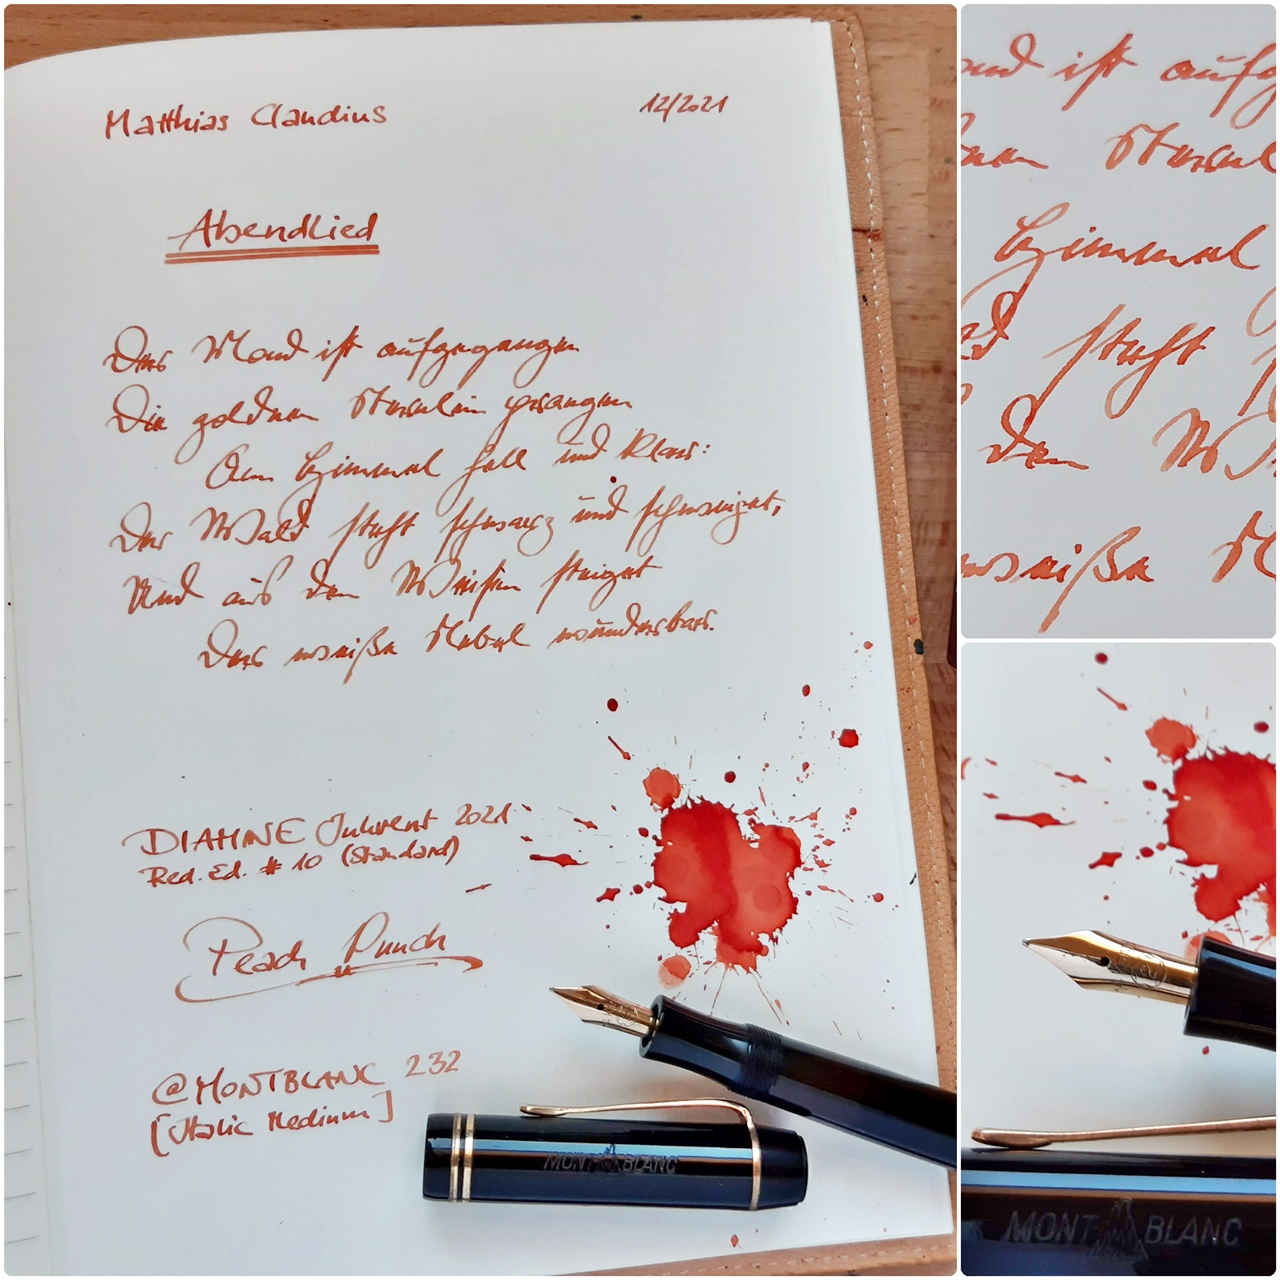 Matthias Claudius 12/2021
Abendlied
Der Mond ist aufgegangen
Die goldnen Sternlein prangen
Am Himmel hell und klar:
Der Wald steht schwarz und schweiget,
Und aus den Wiesen steiget
Der weiße Nebel wunderbar.
DIAMINE Inkvent 2021
Red. Ed. # 10 (Standard)
Peach Punch
@MONTBLANC 232
[Italic Medium]
MONT BLANC
ond ist aufg
nen Sternl
Himmel
ld steht
den Wi
weiße N
MONT BLANC